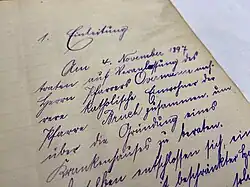 1. Einleitung
Am 4. November 1897
traten auf Veranlassung des
Herrn Pfarrers Overmann meh-
rere katholische Einwohner der
Pfarre Bruch zusammen, um
über die Gründung eines
Krankenhauses zu beraten.
entschlossen sich, in
beschränkter